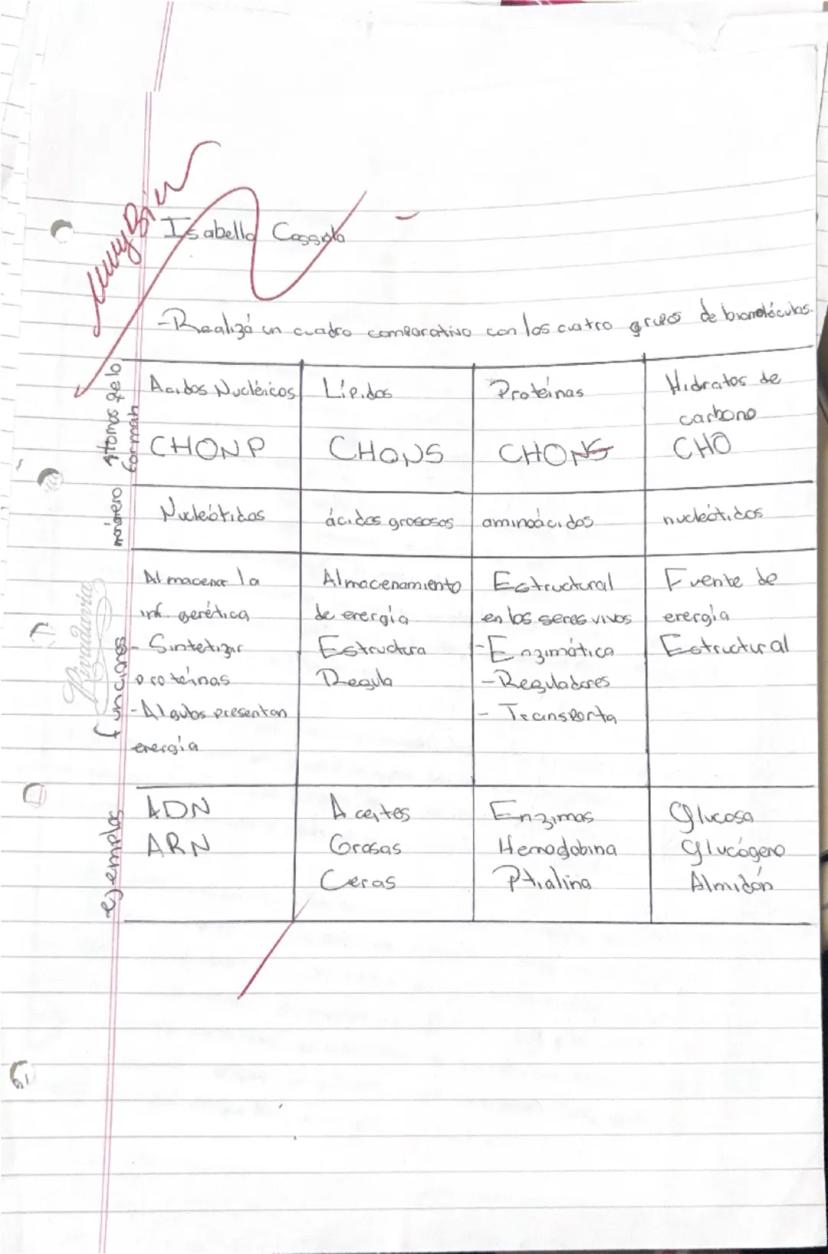 muy Bien
Isabella
-Realizá un cuadro comparativo con los cuatro grupos de biomoléculas.
átomos qe lo forman
Acidos Nucléicos
CHONP
Lípidos
CHONS
Proteínas
CHONS
Hidratos de
carbono
CHO
monómero
Nucleótidos
ácidos grasosos
aminoácidos
nucleótidos
funciones
Almacenar la
inf. genética
- Sintetizar
proteínas
-Algubs presentan
energía
Almacenamiento
de energía
Estructura
Regula
Estructural
en los seres vivos
-Enzimática
-Reguladores
- Transporta
Fuente de
energía
Estructural
ejemplos
ADN
ARN
Aceites
Grasas
Ceras
Enzimas
Hemoglobina
Ptialina
Glucosa
Glucógeno
Almidón
Rivadavia